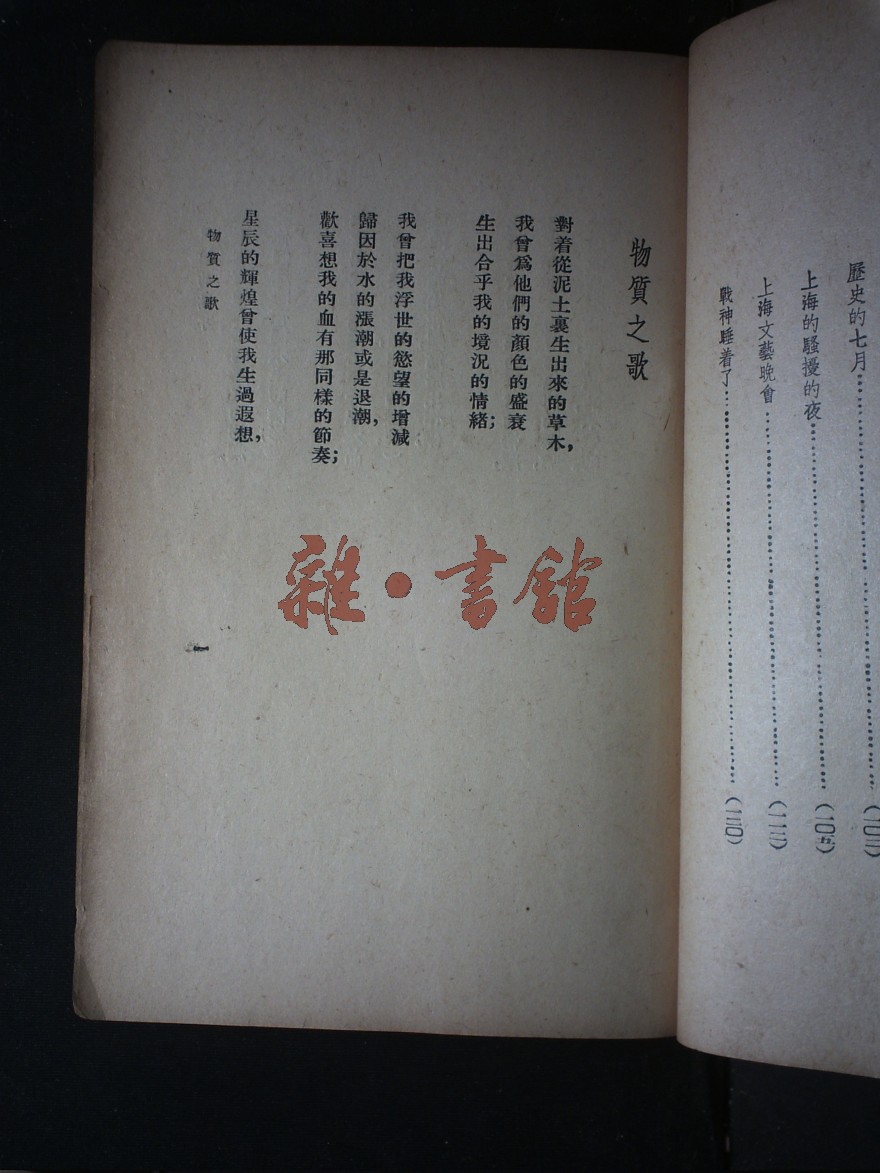 歷史的七月……(一〇三)
上海的騷擾的夜……(一〇五)
上海文藝晚會……(一一二)
戰神睡着了……(一二〇)
物質之歌
對着從泥土裏生出來的草木，
我曾爲他們的顏色的盛衰
生出合乎我的境況的情緒；
我曾把我浮世的慾望的增減
歸因於水的漲潮或是退潮，
歡喜想我的血有那同樣的節奏；
星辰的輝煌曾使我生過遐想，
物質之歌
一
雜・書館